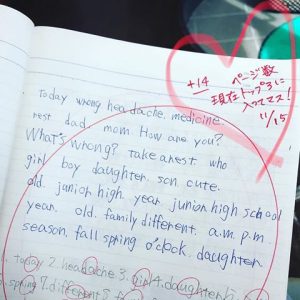 +14 ページ数
現在トップ3に
入ってマス!
11/15
today wrong headache. medicine
rest dad mom. How are you?
What's wrong? Take a rest who
girl boy daughter. son. cute.
old. junior high. year junior high school
year. old. family different. a.m. p.m.
season. fall spring o'clock. daughter.
1. today 2. headache 3. girl 4. daughter
spring 7. different 8.